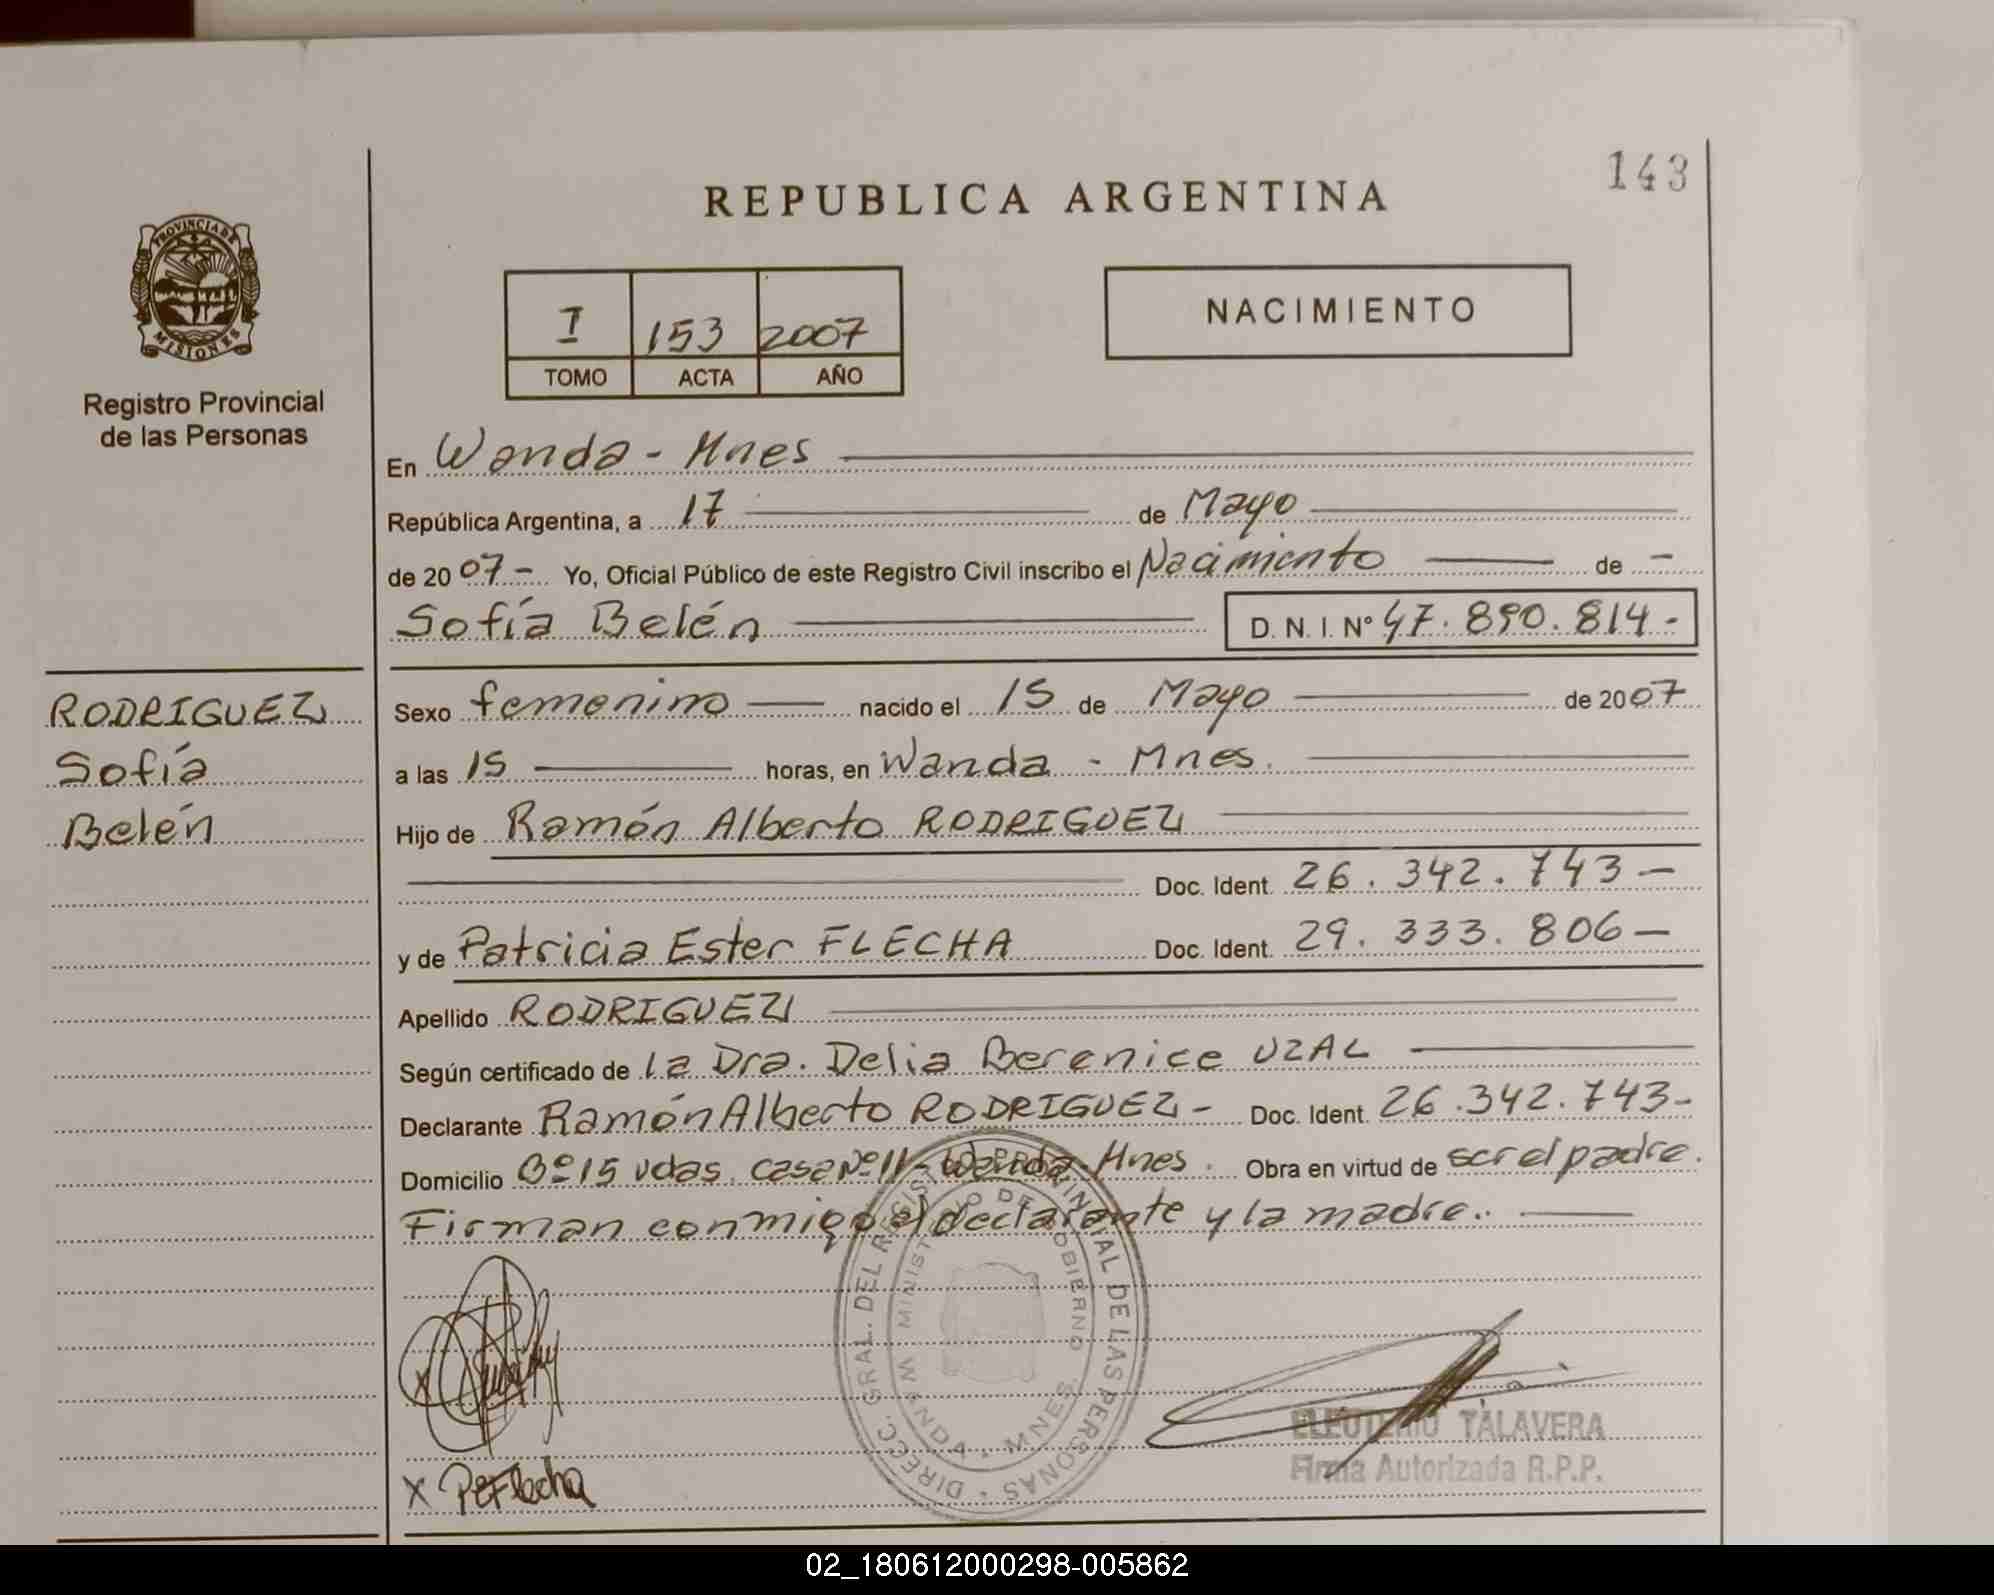 143
REPUBLICA ARGENTINA
PROVINCIA DE
MISIONES
Registro Provincial
de las Personas
I 153 2007
TOMO ACTA AÑO
NACIMIENTO
En Wanda - Mnes
República Argentina, a 17 de Mayo
de 20 07 - Yo, Oficial Público de este Registro Civil inscribo el Nacimiento de -
Sofía Belén D. N. I. Nº 47.890.814.-
RODRIGUEZ
Sofía
Belén
Sexo femenino nacido el 15 de Mayo de 2007
a las 15 horas, en Wanda - Mnes.
Hijo de Ramón Alberto RODRIGUEZ
Doc. Ident. 26.342.743-
y de Patricia Ester FLECHA Doc. Ident. 29.333.806-
Apellido RODRIGUEZ
Según certificado de la Dra. Delia Berenice UZAL
Declarante Ramón Alberto RODRIGUEZ - Doc. Ident. 26.342.743-
Domicilio Bº 15 vdas. casa Nº 11 - Wanda - Mnes. Obra en virtud de ser el padre.
Firman conmigo el declarante y la madre.
DIRECC. GRAL. DEL REGISTRO PROVINCIAL DE LAS PERSONAS
MINISTERIO DE GOBIERNO
WANDA - MNES.
X
X PEFlecha
ELEUTERIO TALAVERA
Firma Autorizada R.P.P.
02_180612000298-005862